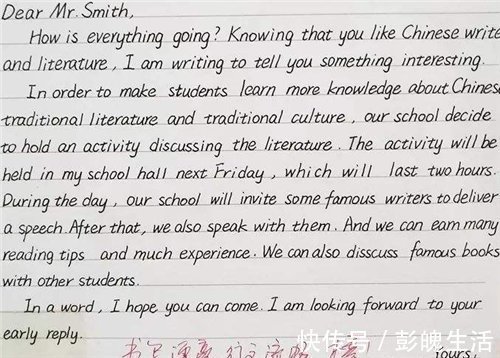 Dear Mr. Smith,
How is everything going? Knowing that you like Chinese write
and literature, I am writing to tell you something interesting.
In order to make students learn more knowledge about Chines
traditional literature and traditional culture, our school decide
to hold an activity discussing the literature. The activity will be
held in my school hall next Friday, which will last two hours.
During the day, our school will invite some famous writers to deliver
a speech. After that, we also speak with them. And we can earn many
reading tips and much experience. We can also disscuss famous books
with other students.
In a word, I hope you can come. I am looking forward to your
early reply.
快传号 / 彭皅生活